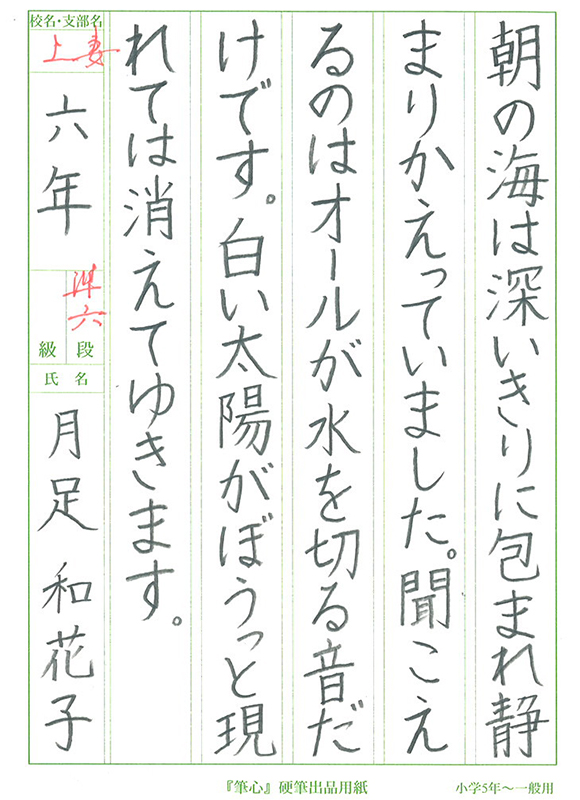 朝の海は深いきりに包まれ静
まりかえっていました。聞こえ
るのはオールが水を切る音だ
けです。白い太陽がぼうっと現
れては消えてゆきます。
校名・支部名
上妻
六年
段
準六
級
氏名
月足 和花子
『筆心』硬筆出品用紙
小学5年〜一般用